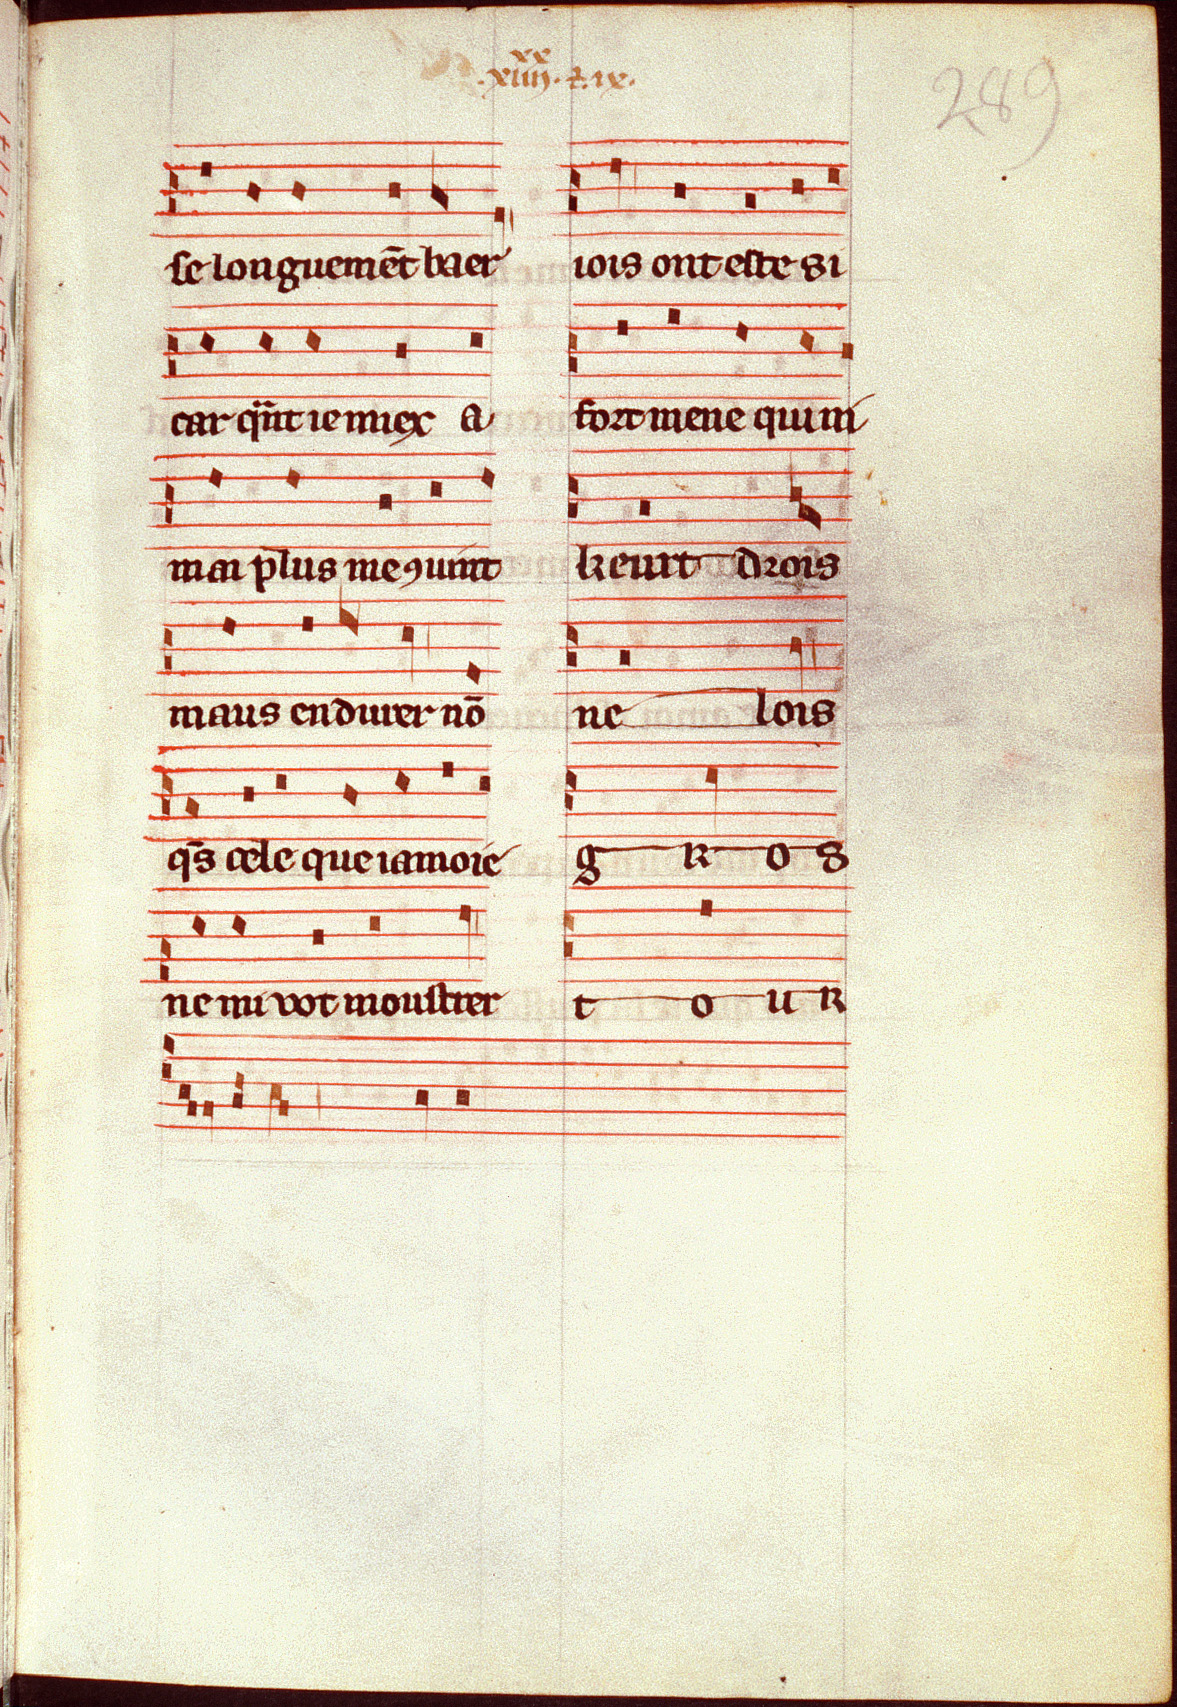 .xiiijˣˣ. ⁊. ix.
289
se longuemēt baer
car qͣnt ie miex a
mai pͬlus me ꝯuint
maus endurer nō
q̄s cele que iamoie
ne mi vot moustrer
iois ont este si
fort mene qui ni
keurt drois
ne lois
g R o s
t o u R